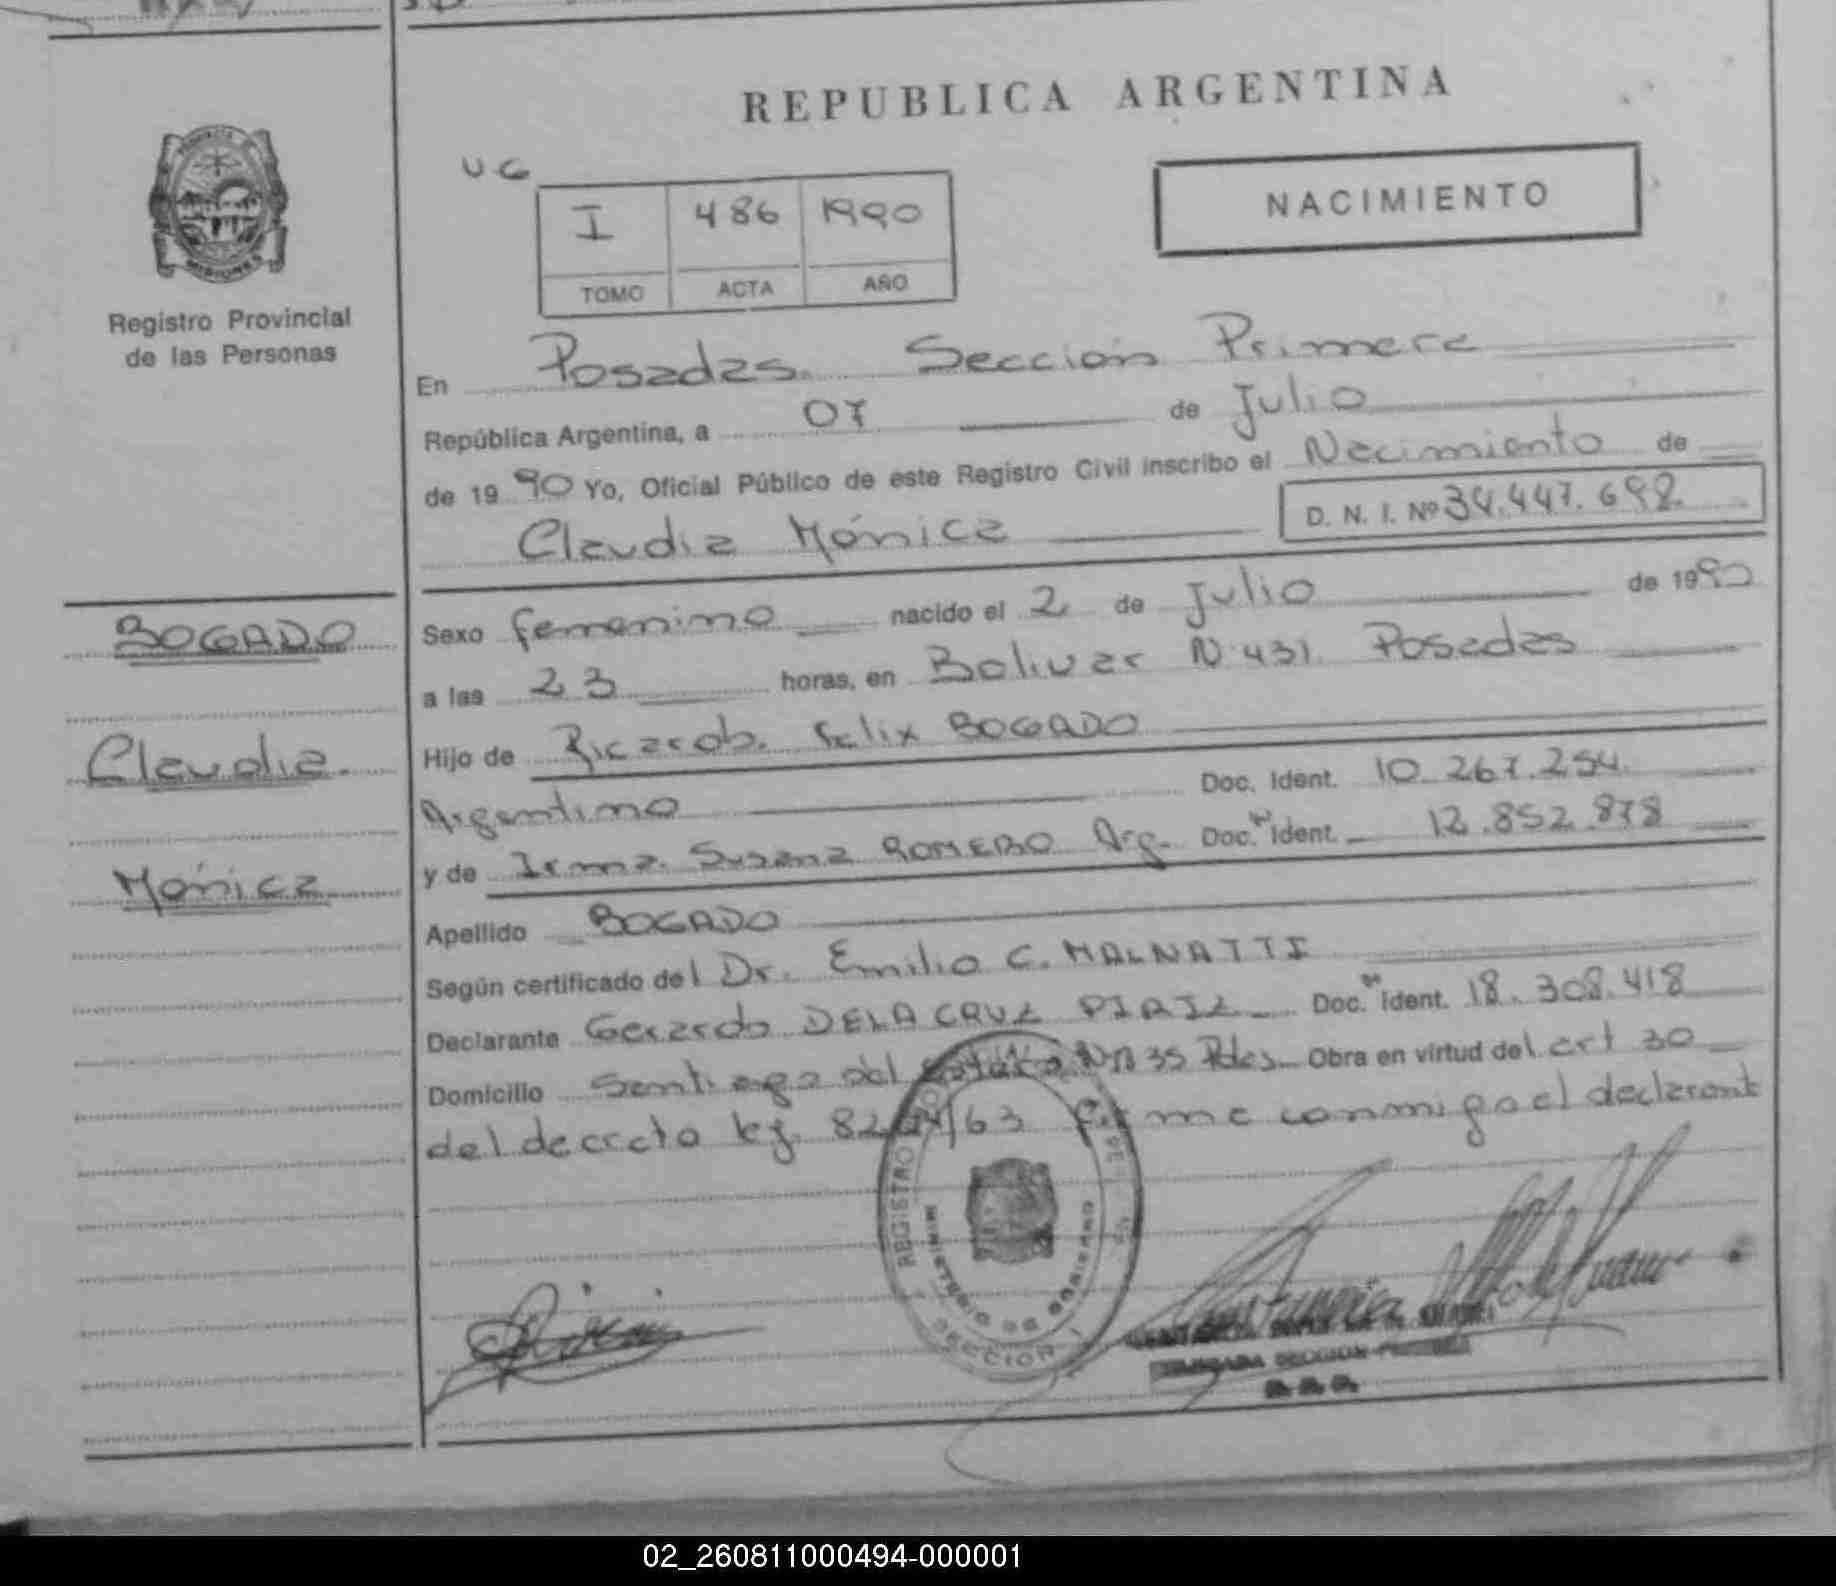 REPUBLICA ARGENTINA
MISIONES
Registro Provincial
de las Personas
UG
I 486 1990
TOMO ACTA AÑO
NACIMIENTO
En Posadas. Sección Primera
República Argentina, a 07 de Julio
de 1990 Yo, Oficial Público de este Registro Civil inscribo el Nacimiento de
Claudia Mónica D. N. I. Nº 34.447.692
BOGADO
Claudia
Mónica
Sexo femenino nacido el 2 de Julio de 1990
a las 23 horas, en Bolivar N 431 Posadas
Hijo de Ricardo. Felix BOGADO
Argentino Doc. Ident. 10.267.254
y de Irma. Susana ROMERO Arg. Doc. Ident. 12.852.878
Apellido BOGADO
Según certificado del Dr. Emilio C. MALNATTI
Declarante Gerardo DELACRUZ Doc. Ident. 18.308.418
Domicilio Santiago del Nº 35 Pdas. Obra en virtud del art 30
del decreto ley. 8204/63 firma conmigo el declarant
REGISTRO
MINISTERIO DE GOBIERNO
SECCION 1
02_260811000494-000001